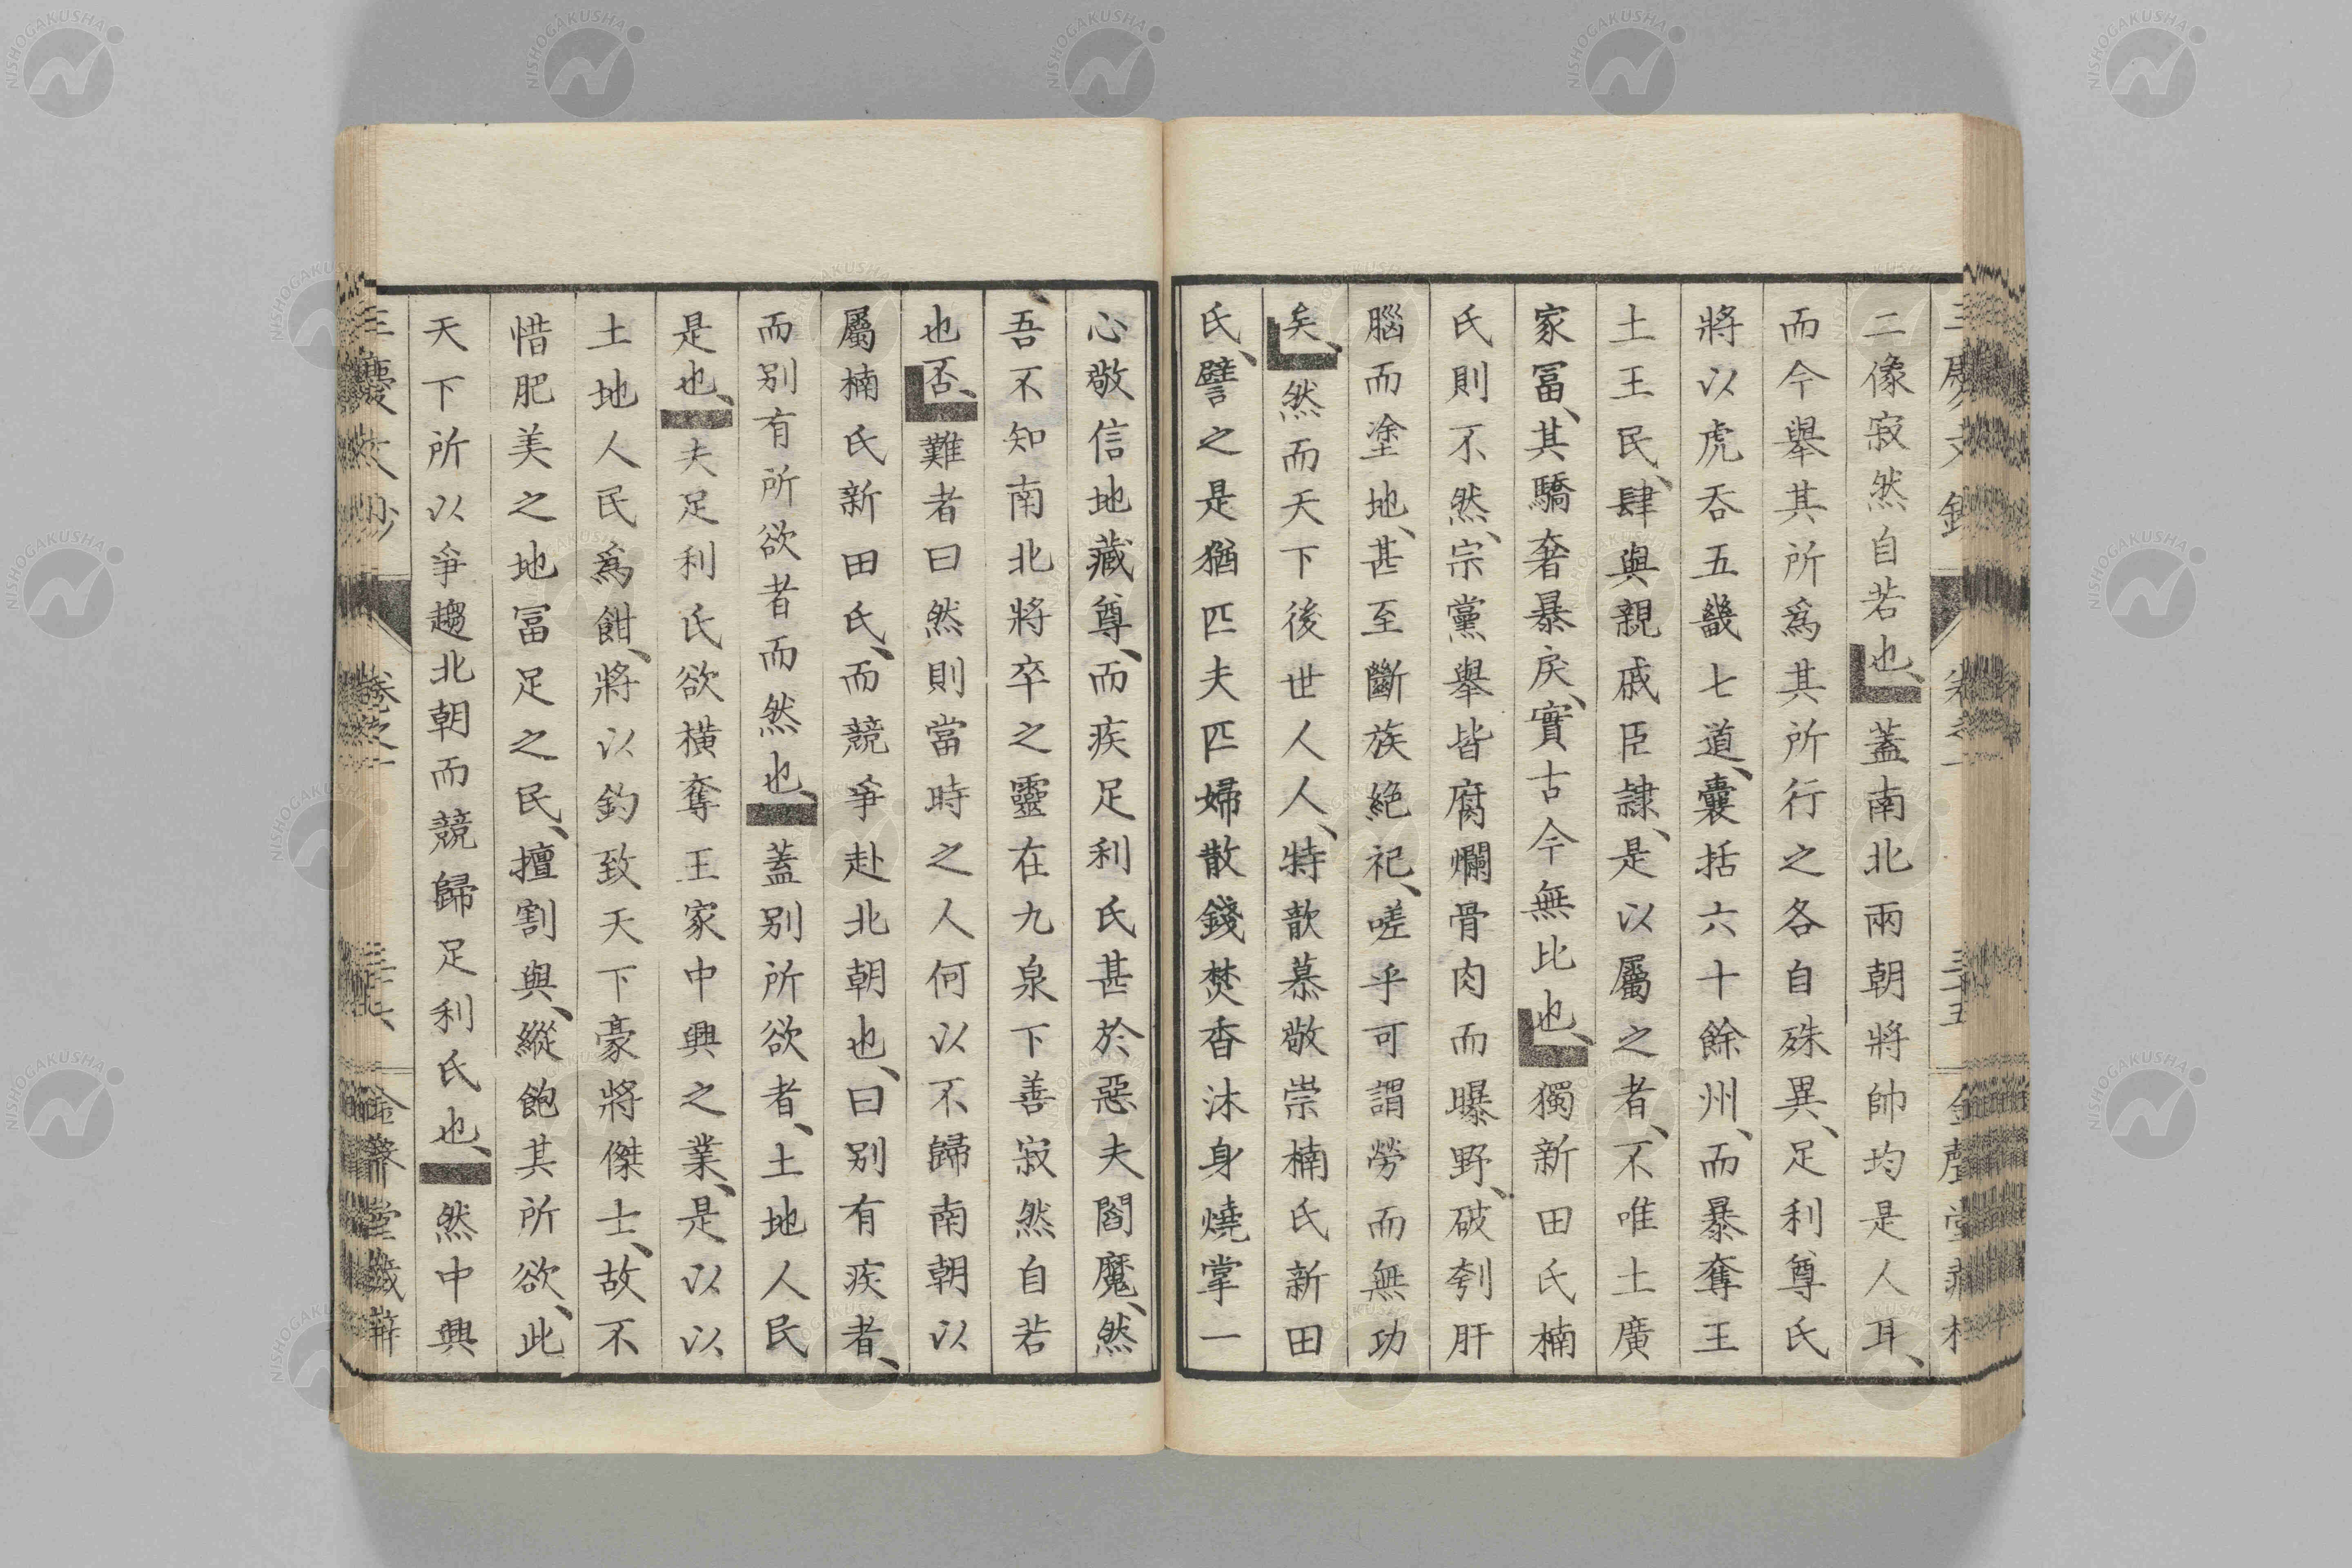 二像寂然自若也、蓋南北兩朝將帥均是人耳、
而今舉其所爲其所行之各自殊異、足利尊氏
將以虎吞五畿七道、囊括六十餘州、而暴奪王
土王民、肆與親戚臣隷、是以屬之者、不唯土廣
家冨、其驕奢暴戾、實古今無比也、獨新田氏楠
氏則不然、宗黨舉皆腐爛骨肉而曝野、破刳肝
腦而塗地、甚至斷族絕祀、嗟乎可謂勞而無功
矣、然而天下後世人人、特歆慕敬崇楠氏新田
氏、譬之是猶匹夫匹婦散錢焚香沐身燒掌一
心敬信地藏尊、而疾足利氏甚於惡夫閻魔、然
吾不知南北將卒之靈在九泉下善寂然自若
也否、難者曰然則當時之人何以不歸南朝以
屬楠氏新田氏、而競爭赴北朝也、曰別有疾者、
而別有所欲者而然也、蓋別所欲者、土地人民
是也、夫足利氏欲橫奪王家中興之業、是以以
土地人民爲餌、將以釣致天下豪將傑士、故不
惜肥美之地冨足之民、擅割與、縱飽其所欲、此
天下所以爭趨北朝而競歸足利氏也、然中興
NISHOGAKUSHA